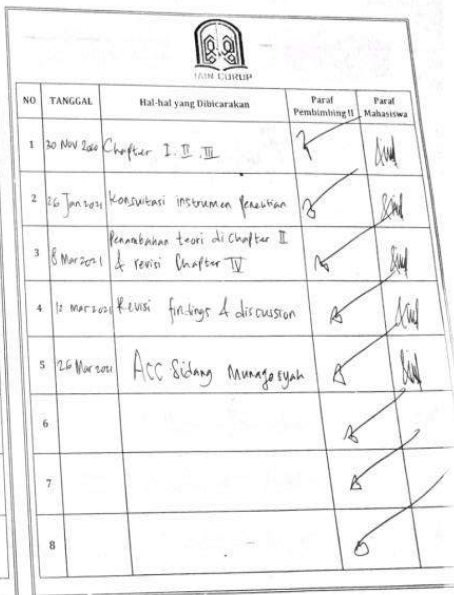 IAIN CURUP
NO TANGGAL Hal-hal yang Dibicarakan Paraf Pembimbing II Paraf Mahasiswa
1 30 Nov 2020 Chapter I. II. III
2 26 Jan 2021 Konsultasi instrumen penelitian
3 8 Mar 2021 Penambahan teori di Chapter II
& revisi Chapter IV
4 12 Mar 2021 Revisi findings & discussion
5 26 Mar 2021 ACC Sidang Munaqosyah
6
7
8